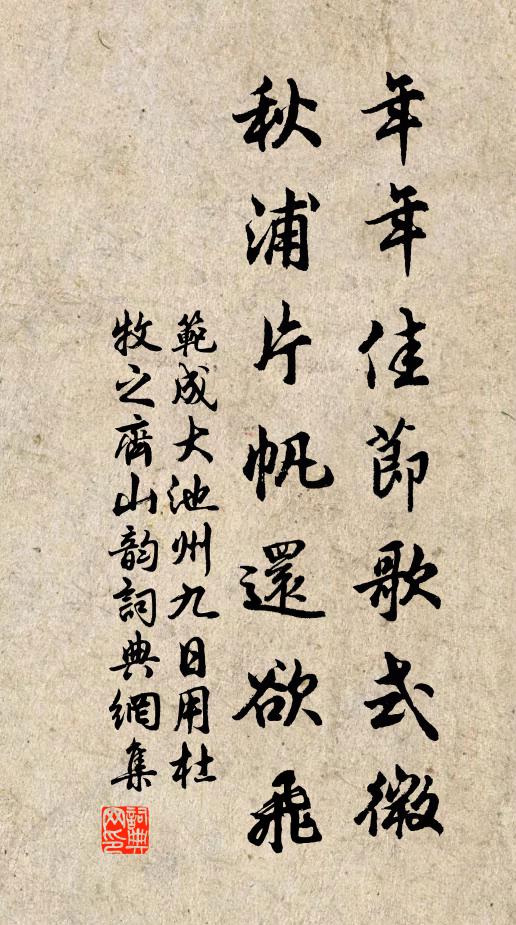 年年佳節歌式微
秋浦片帆還欲飛
範成大池州九日用杜
牧之齊山韵詞典網集
詞典
网印